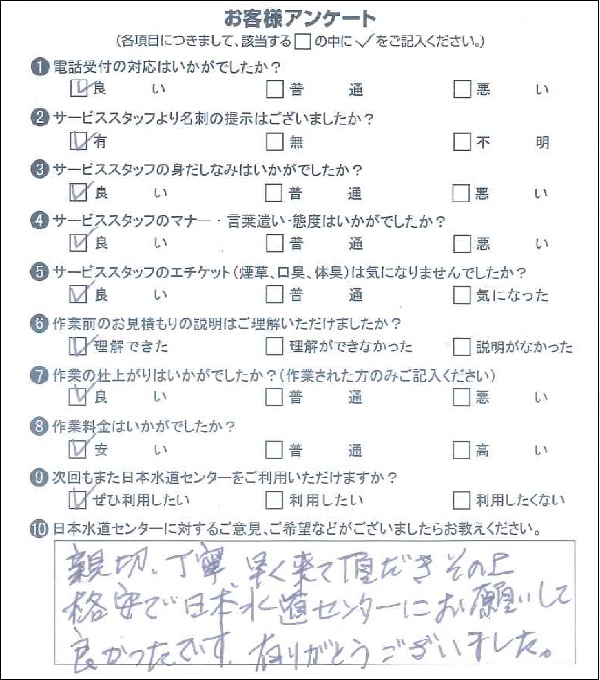 お客様アンケート
(各項目につきまして、該当する□の中に✓をご記入ください。)
❶電話受付の対応はいかがでしたか?
☑良い □普通 □悪い
❷サービススタッフより名刺の提示はございましたか?
☑有 □無 □不明
❸サービススタッフの身だしなみはいかがでしたか?
☑良い □普通 □悪い
❹サービススタッフのマナー・言葉遣い・態度はいかがでしたか?
☑良い □普通 □悪い
❺サービススタッフのエチケット(煙草、口臭、体臭)は気になりませんでしたか?
☑良い □普通 □気になった
❻作業前のお見積もりの説明はご理解いただけましたか?
☑理解できた □理解ができなかった □説明がなかった
❼作業の仕上がりはいかがでしたか?(作業された方のみご記入ください)
☑良い □普通 □悪い
❽作業料金はいかがでしたか?
☑安い □普通 □高い
❾次回もまた日本水道センターをご利用いただけますか?
☑ぜひ利用したい □利用したい □利用したくない
❿日本水道センターに対するご意見、ご希望などがございましたらお教えください。
親切、丁寧 早く来て頂だきその上
格安で日本水道センターにお願いして
良かったです。有りがとうございました。